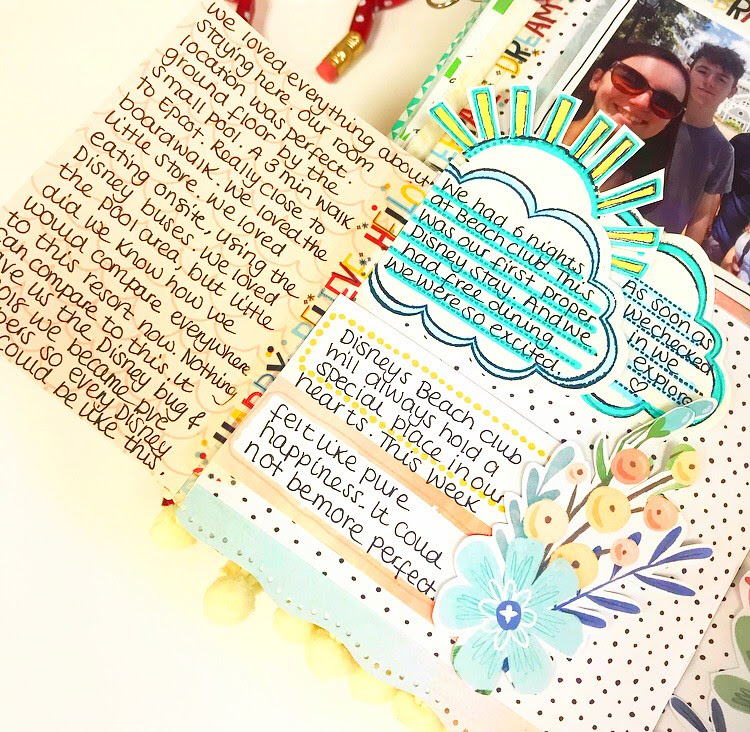 we loved everything about
staying here. Our room
location was perfect.
ground floor by the
small pool. A 3 min walk
to Epcot. Really close to
boardwalk. We loved the
little store. We loved
eating onsite, using the
Disney buses. We loved
the pool area, but little
did we know how we
would compare everywhere
to this resort now. Nothing
can compare to this. It
us the Disney bug &
we became DVC
so every Disney
could be like this.
HAPPY BELIEVE HELLO
DREAM
We had 6 nights
at Beach Club. This
was our first proper
Disney stay. And we
had free dining
we were so excited.
As soon as
we checked
in we
explore
Disney's Beach Club
will always hold a
special place in our
hearts. This week
felt like pure
happiness. It could
not be more perfect.